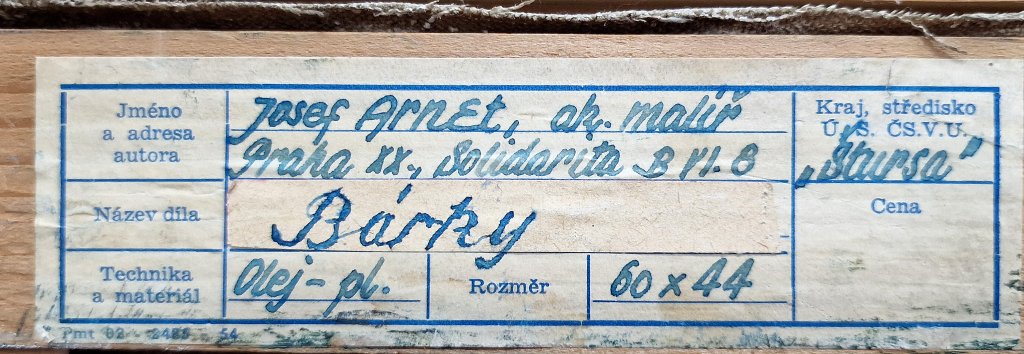 Jméno
a adresa
autora
Josef Arnet, ak. malíř
Praha XX., Solidarita B VI. 8
Kraj, středisko
Ú. S. ČS.V.U.
„Štursa"
Název díla
Bárky
Cena
Technika
a materiál
Olej - pl.
Rozměr
60 x 44
Pmt 02 2488 54